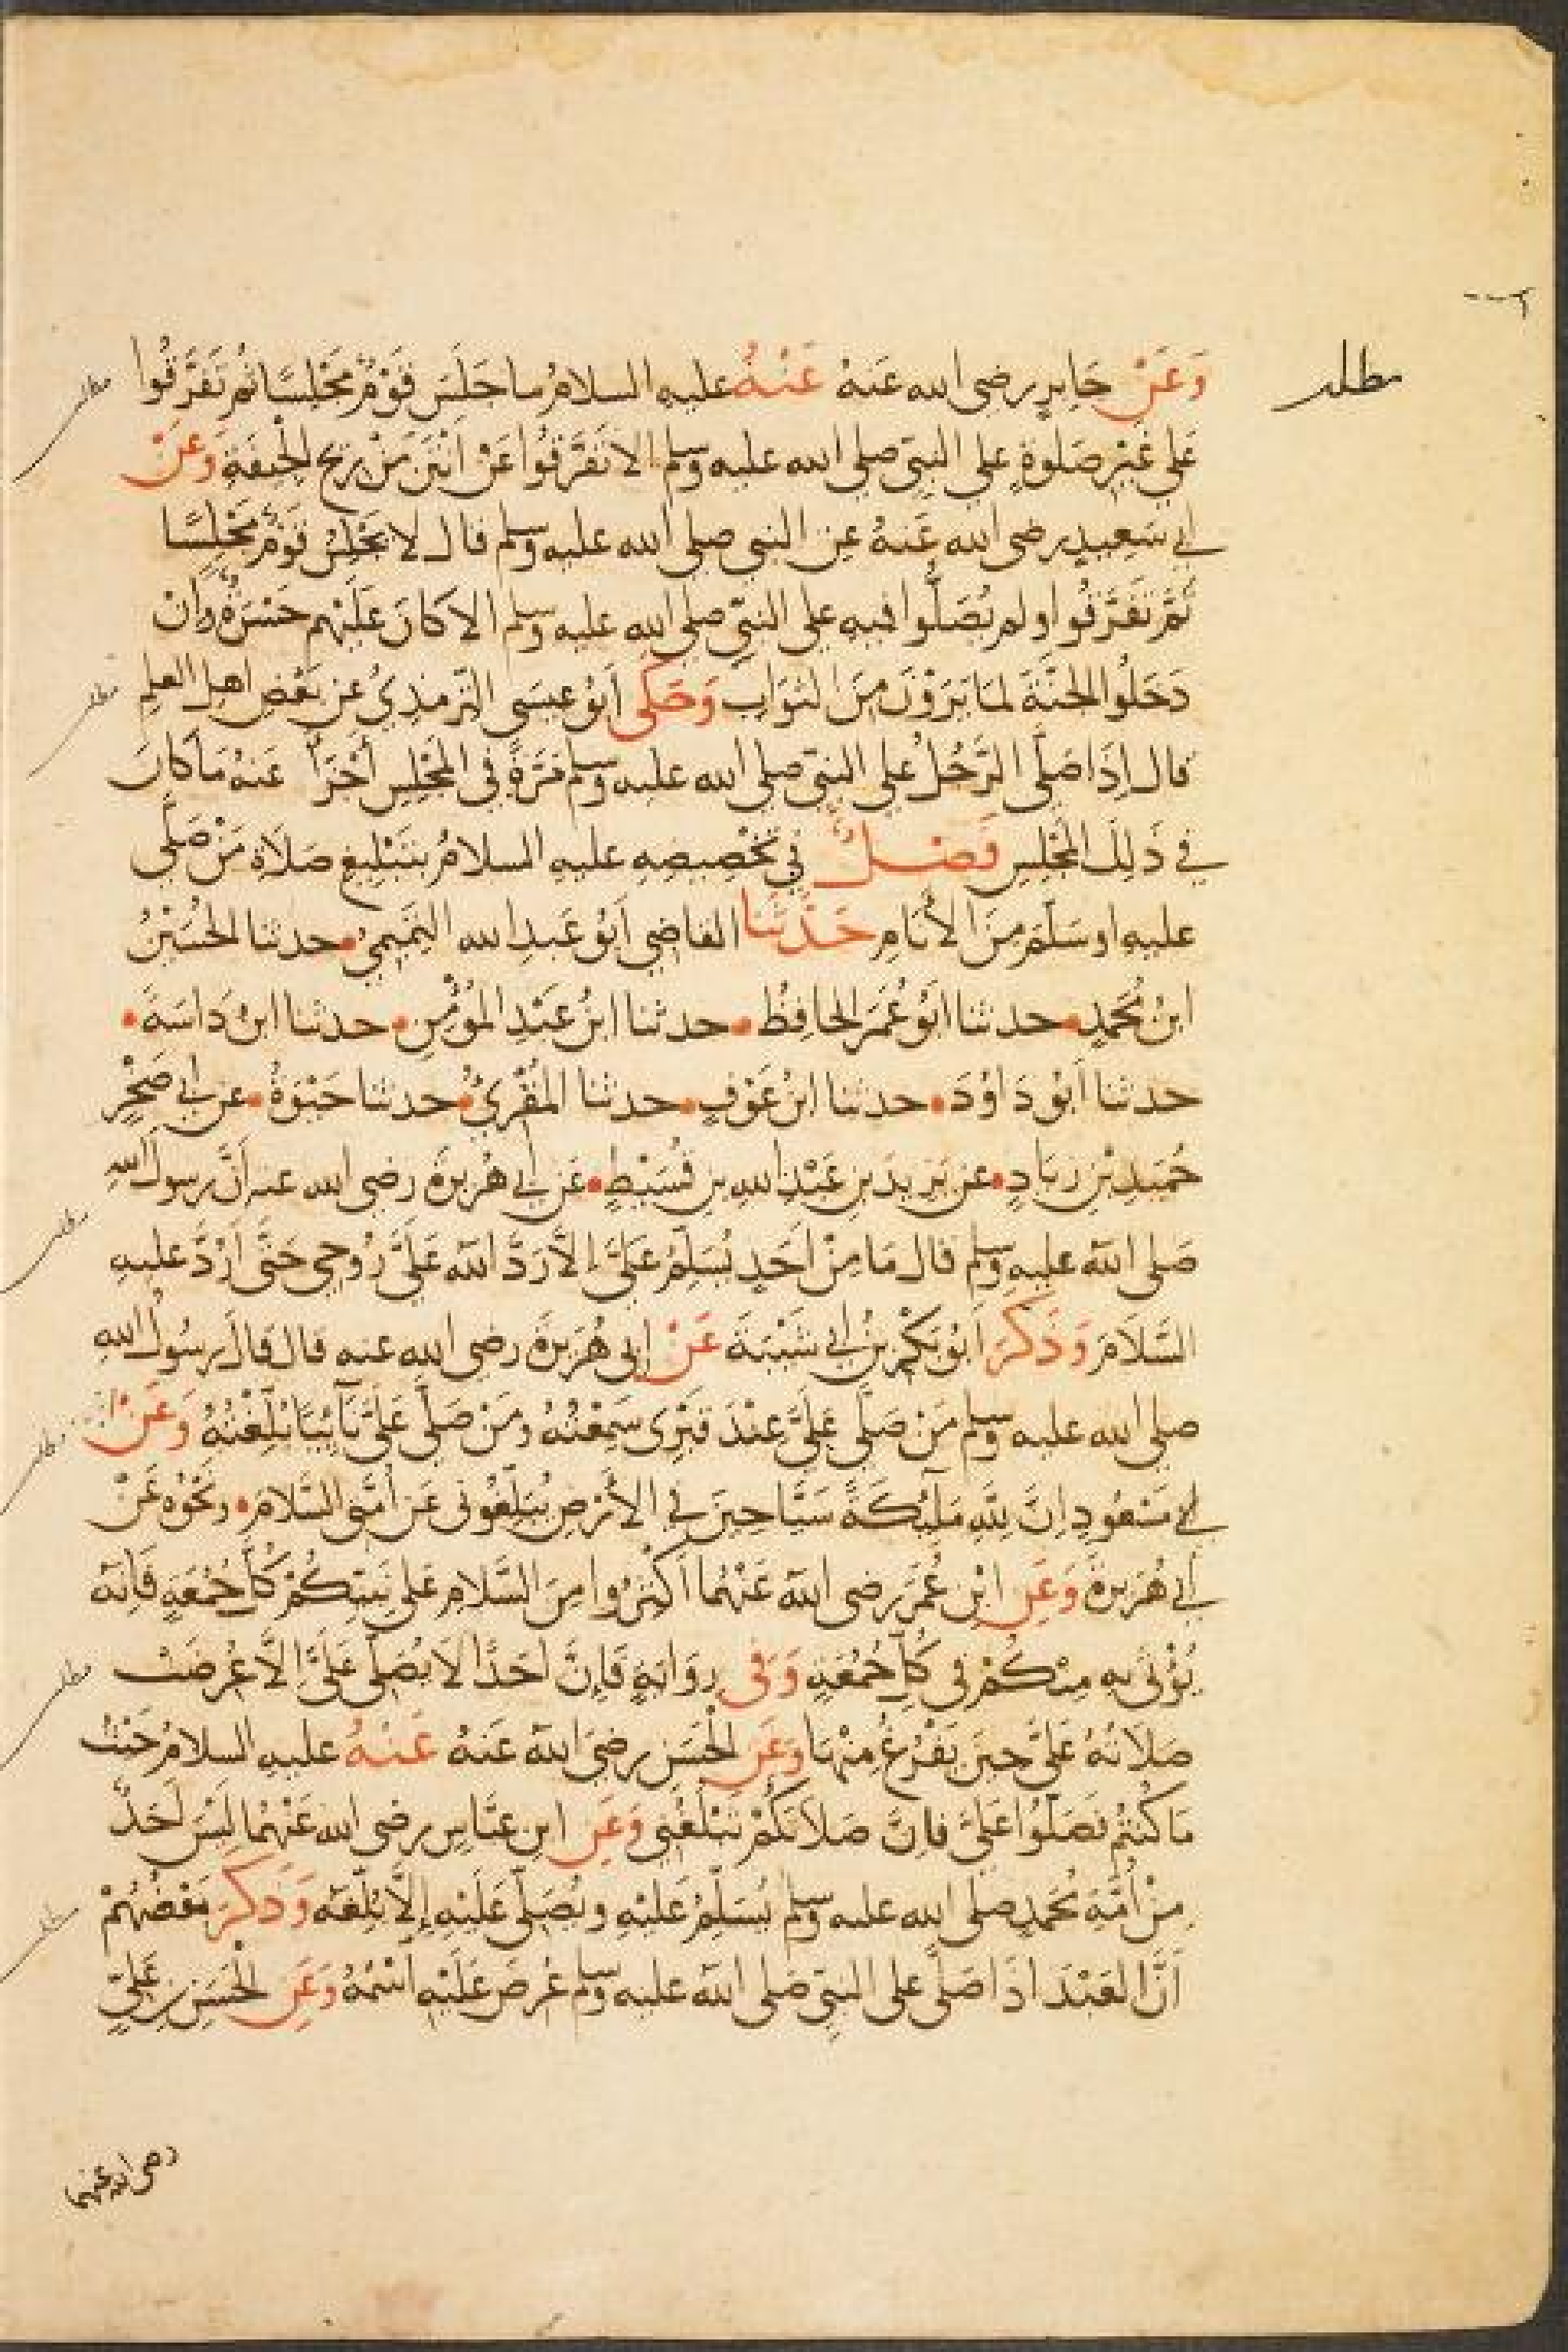 مطلب
وَعَنْ جَابِرٍ رضى الله عَنهُ عَنْهُ عليه السلامُ ما جَلَسَ قَوْمٌ مَجْلِسًا ثُم تَفَرَّقُوا
عَلى غَيْرِ صَلوةٍ على النبيّ صلى الله عليه وسلم الا تَفَرَّقُوا عَنْ اَنْتَنَ مِنْ ريح الْجيفَةِ وَعَنْ
ابي سَعِيدٍ رضى الله عَنهُ عن النبي صلى الله عليه وسلم قال لا يَجْلِسُ قَوْمٌ مَجْلِسًا
ثُمَّ تَفَرَّقُوا ولم يُصَلُّوا فيه على النبيّ صلى الله عليه وسلم الا كانَ عَلَيْهم حَسْرَةً وانْ
دَخَلُوا الجنّةَ لمَا يَرَوْنَ مِنَ الثوَابِ وَحَكَى اَبُو عيسَى الترمذِيُ عن بَعْضِ اهل العِلمِ
قال اِذَا صَلّى الرَّجُلُ على النبيّ صلى الله عليه وسلم مَرَّةً في المَجْلِسِ أجْزَأ عَنهُ مَا كانَ
في ذَلِكَ المَجْلِسِ فَصْلٌ في تَخْصِيصِهِ عليهِ السلامُ بتَبْلِيغِ صَلاَة مَنْ صَلّى
عليهِ او سَلّمَ مِنَ الأنَامِ حَدَّثَنا القاضِي اَبُو عَبدِ الله التميميُ حدثنا الحُسَيْنُ
ابنُ مُحَمدٍ حدثنا اَبُو عُمَرَ الحَافِظُ حدثنا ابنُ عَبْدِ المُؤمِنِ حدثنا ابنُ دَاسَةَ
حدثنا اَبُو دَاوُدَ حدثنا ابنُ عَوْفٍ حدثنا المُقْرِيُ حدثنا حَيْوَةُ عن ابي صَخْرٍ
حُمَيدِ بْنِ زيَادٍ عن يَزيدَ بنِ عَبْدِ اللهِ بن قُسَيْطٍ عَن ابي هُريرةَ رضى الله عنه أنّ رسولَ اللهِ
صَلى الله عليه وسلم قال مَا مِنْ اَحَدٍ يُسَلّمُ عَلَيَّ إلاّ رَدَّ الله عَلَيَّ رُوحِي حَتَّى اَرُدَّ عليهِ
السَّلاَمَ وَذَكَرَ اَبُو بَكْرِ بنُ ابي شَيْبَةَ عَنْ ابي هُرَيرَةَ رضى الله عنه قال قالَ رسُولُ اللهِ
صلى الله عليه وسلم مَنْ صَلّى عَلَيَّ عِنْدَ قَبْرِى سَمِعْتُهُ ومَنْ صَلّى عَلَيَّ نَآئِيًا بُلِّغْتُهُ وَعَنْ ابن
ابي مَسْعُودٍ اِنَّ لِلّهِ مَلَئِكَةً سَيَّاحِينَ في الأرْضِ يُبَلّغُونى عَن اُمَّتي السَّلامَ ونَحْوُه عَنْ
ابي هُرَيرةَ وَعَنِ ابْنِ عُمَرَ رضى الله عَنْهُما اَكْثِرُوا مِنَ السَّلامِ عَلى نَبِيّكُمْ كُلَّ جُمُعَةٍ فَاِنَّه
يُؤْتَى بِهِ مِنْكُمْ في كُلّ جُمُعَةٍ وَفى رِوَايَةٍ فَاِنَّ اَحَدًا لاَ يُصَلّى عَلَيَّ إلاَّ عُرِضَتْ
صَلاَتُهُ عَلَيَّ حِينَ يَفْرُغُ مِنْهَا وَعَنِ الْحَسَنِ رضىَ الله عَنهُ عَنْهُ عليهِ السلامُ حَيْثُ
مَا كُنْتُمْ فَصَلُّوا عَلَيَّ فاِنَّ صَلاَتَكُمْ تَبْلُغُنِي وَعَنِ ابنِ عبّاسٍ رضى الله عَنْهُما لَيْسَ اَحَدٌ
مِنْ اُمَّةِ مُحَمدٍ صلى الله عليه وسلم يُسَلِّمُ عَلَيْهِ ويُصَلّى عَلَيْهِ إلاَّ بُلِّغَهُ وَذَكَرَ بَعْضُهُمْ
أنَّ العَبْدَ اذَا صَلَّى على النبيّ صَلى الله عليه وسلم عُرِضَ عَلَيْهِ اسْمُهُ وَعَنِ الْحَسَنِ بنِ عَلِيٍّ
مطلب
مطلب
مطلب
مطلب
مطلب
مطلب
رضى الله عنهما